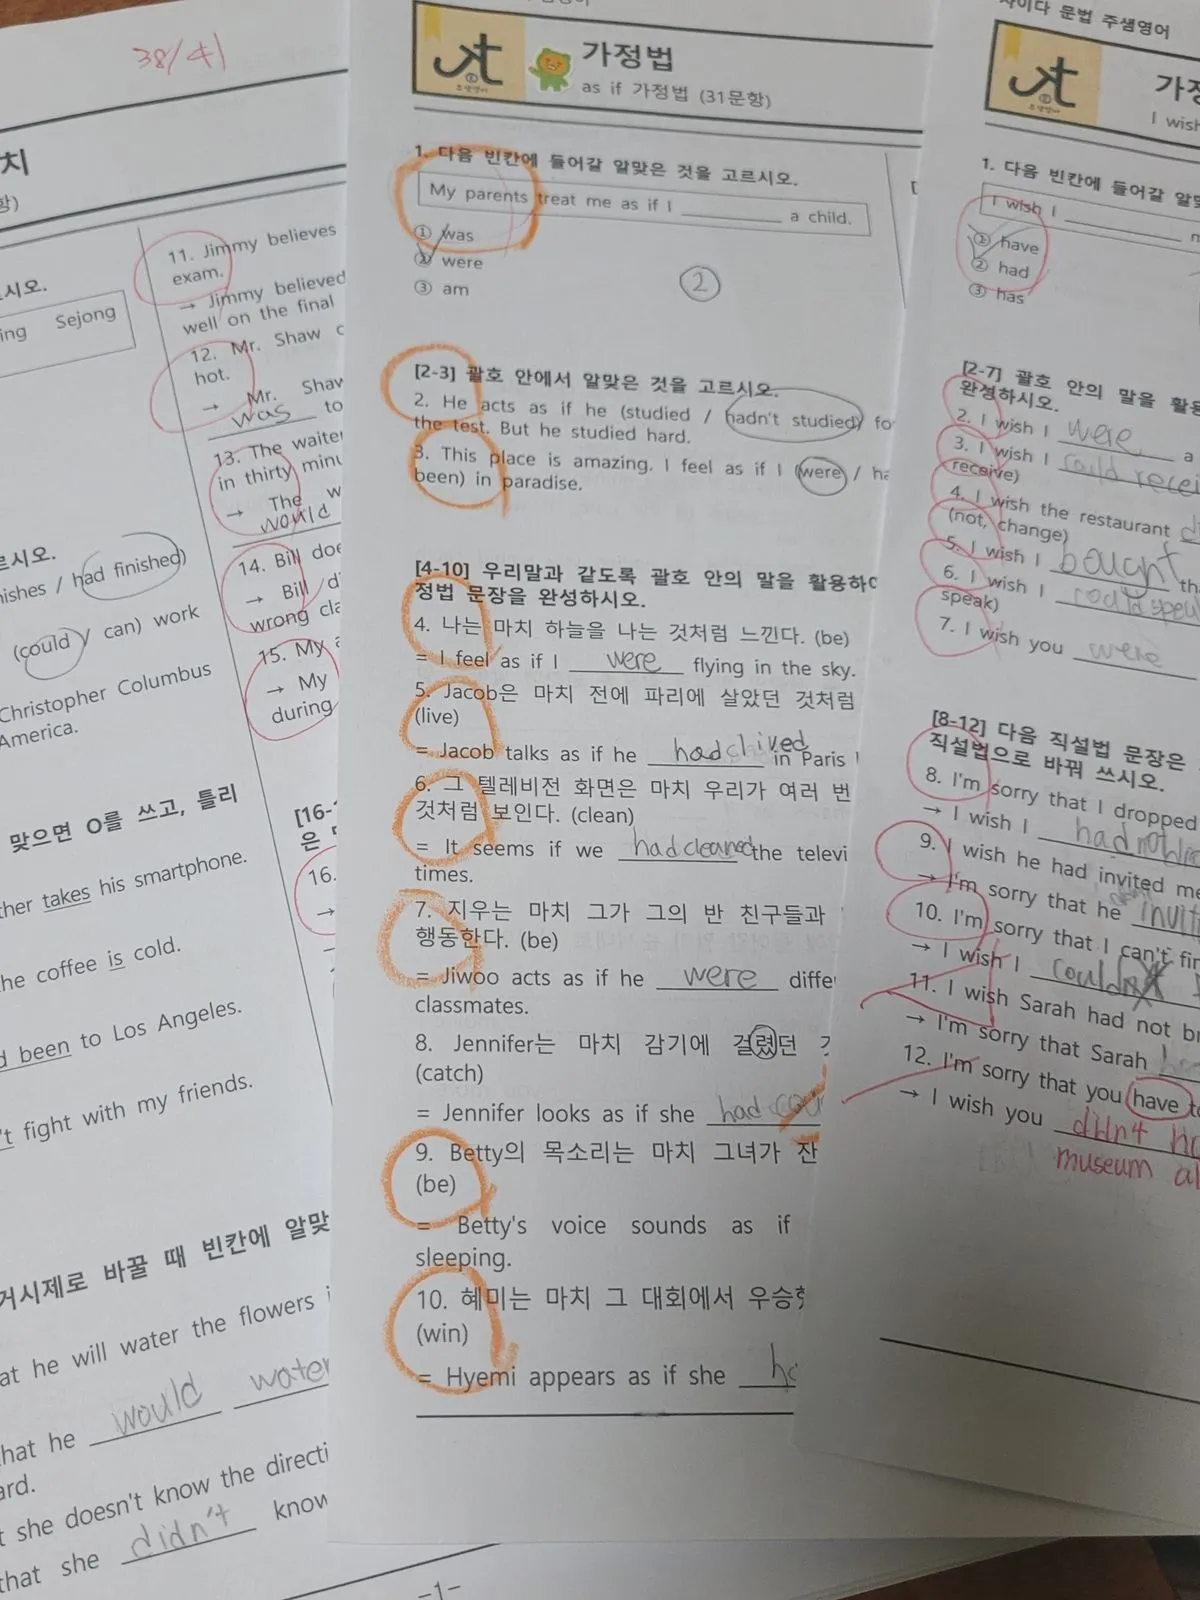 38/41
치
항)
시오.
ing Sejong
르시오.
ishes / had finished)
(could / can) work
Christopher Columbus
America.
맞으면 O를 쓰고, 틀리
ther takes his smartphone.
he coffee is cold.
d been to Los Angeles.
't fight with my friends.
거시제로 바꿀 때 빈칸에 알맞
at he will water the flowers
that he would water
ard.
t she doesn't know the directi
that she didn't know
-1-
11. Jimmy believes
exam.
→ Jimmy believed
well on the final
12. Mr. Shaw
hot.
→ Mr. Shaw
was to
13. The waiter
in thirty minu
→ The w
would
14. Bill doe
→ Bill di
wrong cla
15. My
→ My
during
[16-
은
16.
→
가정법
as if 가정법 (31문항)
1. 다음 빈칸에 들어갈 알맞은 것을 고르시오.
My parents treat me as if I ____ a child.
① was
② were
③ am
②
[2-3] 괄호 안에서 알맞은 것을 고르시오.
2. He acts as if he (studied / hadn't studied) fo
the test. But he studied hard.
3. This place is amazing. I feel as if I (were / ha
been) in paradise.
[4-10] 우리말과 같도록 괄호 안의 말을 활용하여
정법 문장을 완성하시오.
4. 나는 마치 하늘을 나는 것처럼 느낀다. (be)
= I feel as if I were flying in the sky.
5. Jacob은 마치 전에 파리에 살았던 것처럼
(live)
= Jacob talks as if he had lived in Paris
6. 그 텔레비전 화면은 마치 우리가 여러 번
것처럼 보인다. (clean)
= It seems if we had cleaned the televi
times.
7. 지우는 마치 그가 그의 반 친구들과
행동한다. (be)
= Jiwoo acts as if he were diffe
classmates.
8. Jennifer는 마치 감기에 걸렸던
(catch)
= Jennifer looks as if she had
9. Betty의 목소리는 마치 그녀가 잔
(be)
= Betty's voice sounds as if
sleeping.
10. 혜미는 마치 그 대회에서 우승
(win)
= Hyemi appears as if she ha
사이다 문법 주샘영어
가정
I wish
1. 다음 빈칸에 들어갈 알맞
I wish I ____
① have
② had
③ has
[2-7] 괄호 안의 말을 활용
완성하시오.
2. I wish I were a
3. I wish I could recei
receive)
4. I wish the restaurant
(not, change)
5. I wish I bought th
6. I wish I could speak
speak)
7. I wish you were
[8-12] 다음 직설법 문장은
직설법으로 바꿔 쓰시오.
8. I'm sorry that I dropped
→ I wish I had not
9. I wish he had invited me
→ I'm sorry that he didn't invit
10. I'm sorry that I can't fin
→ I wish I could
11. I wish Sarah had not br
→ I'm sorry that Sarah
12. I'm sorry that you have to
→ I wish you didn't ha
museum al